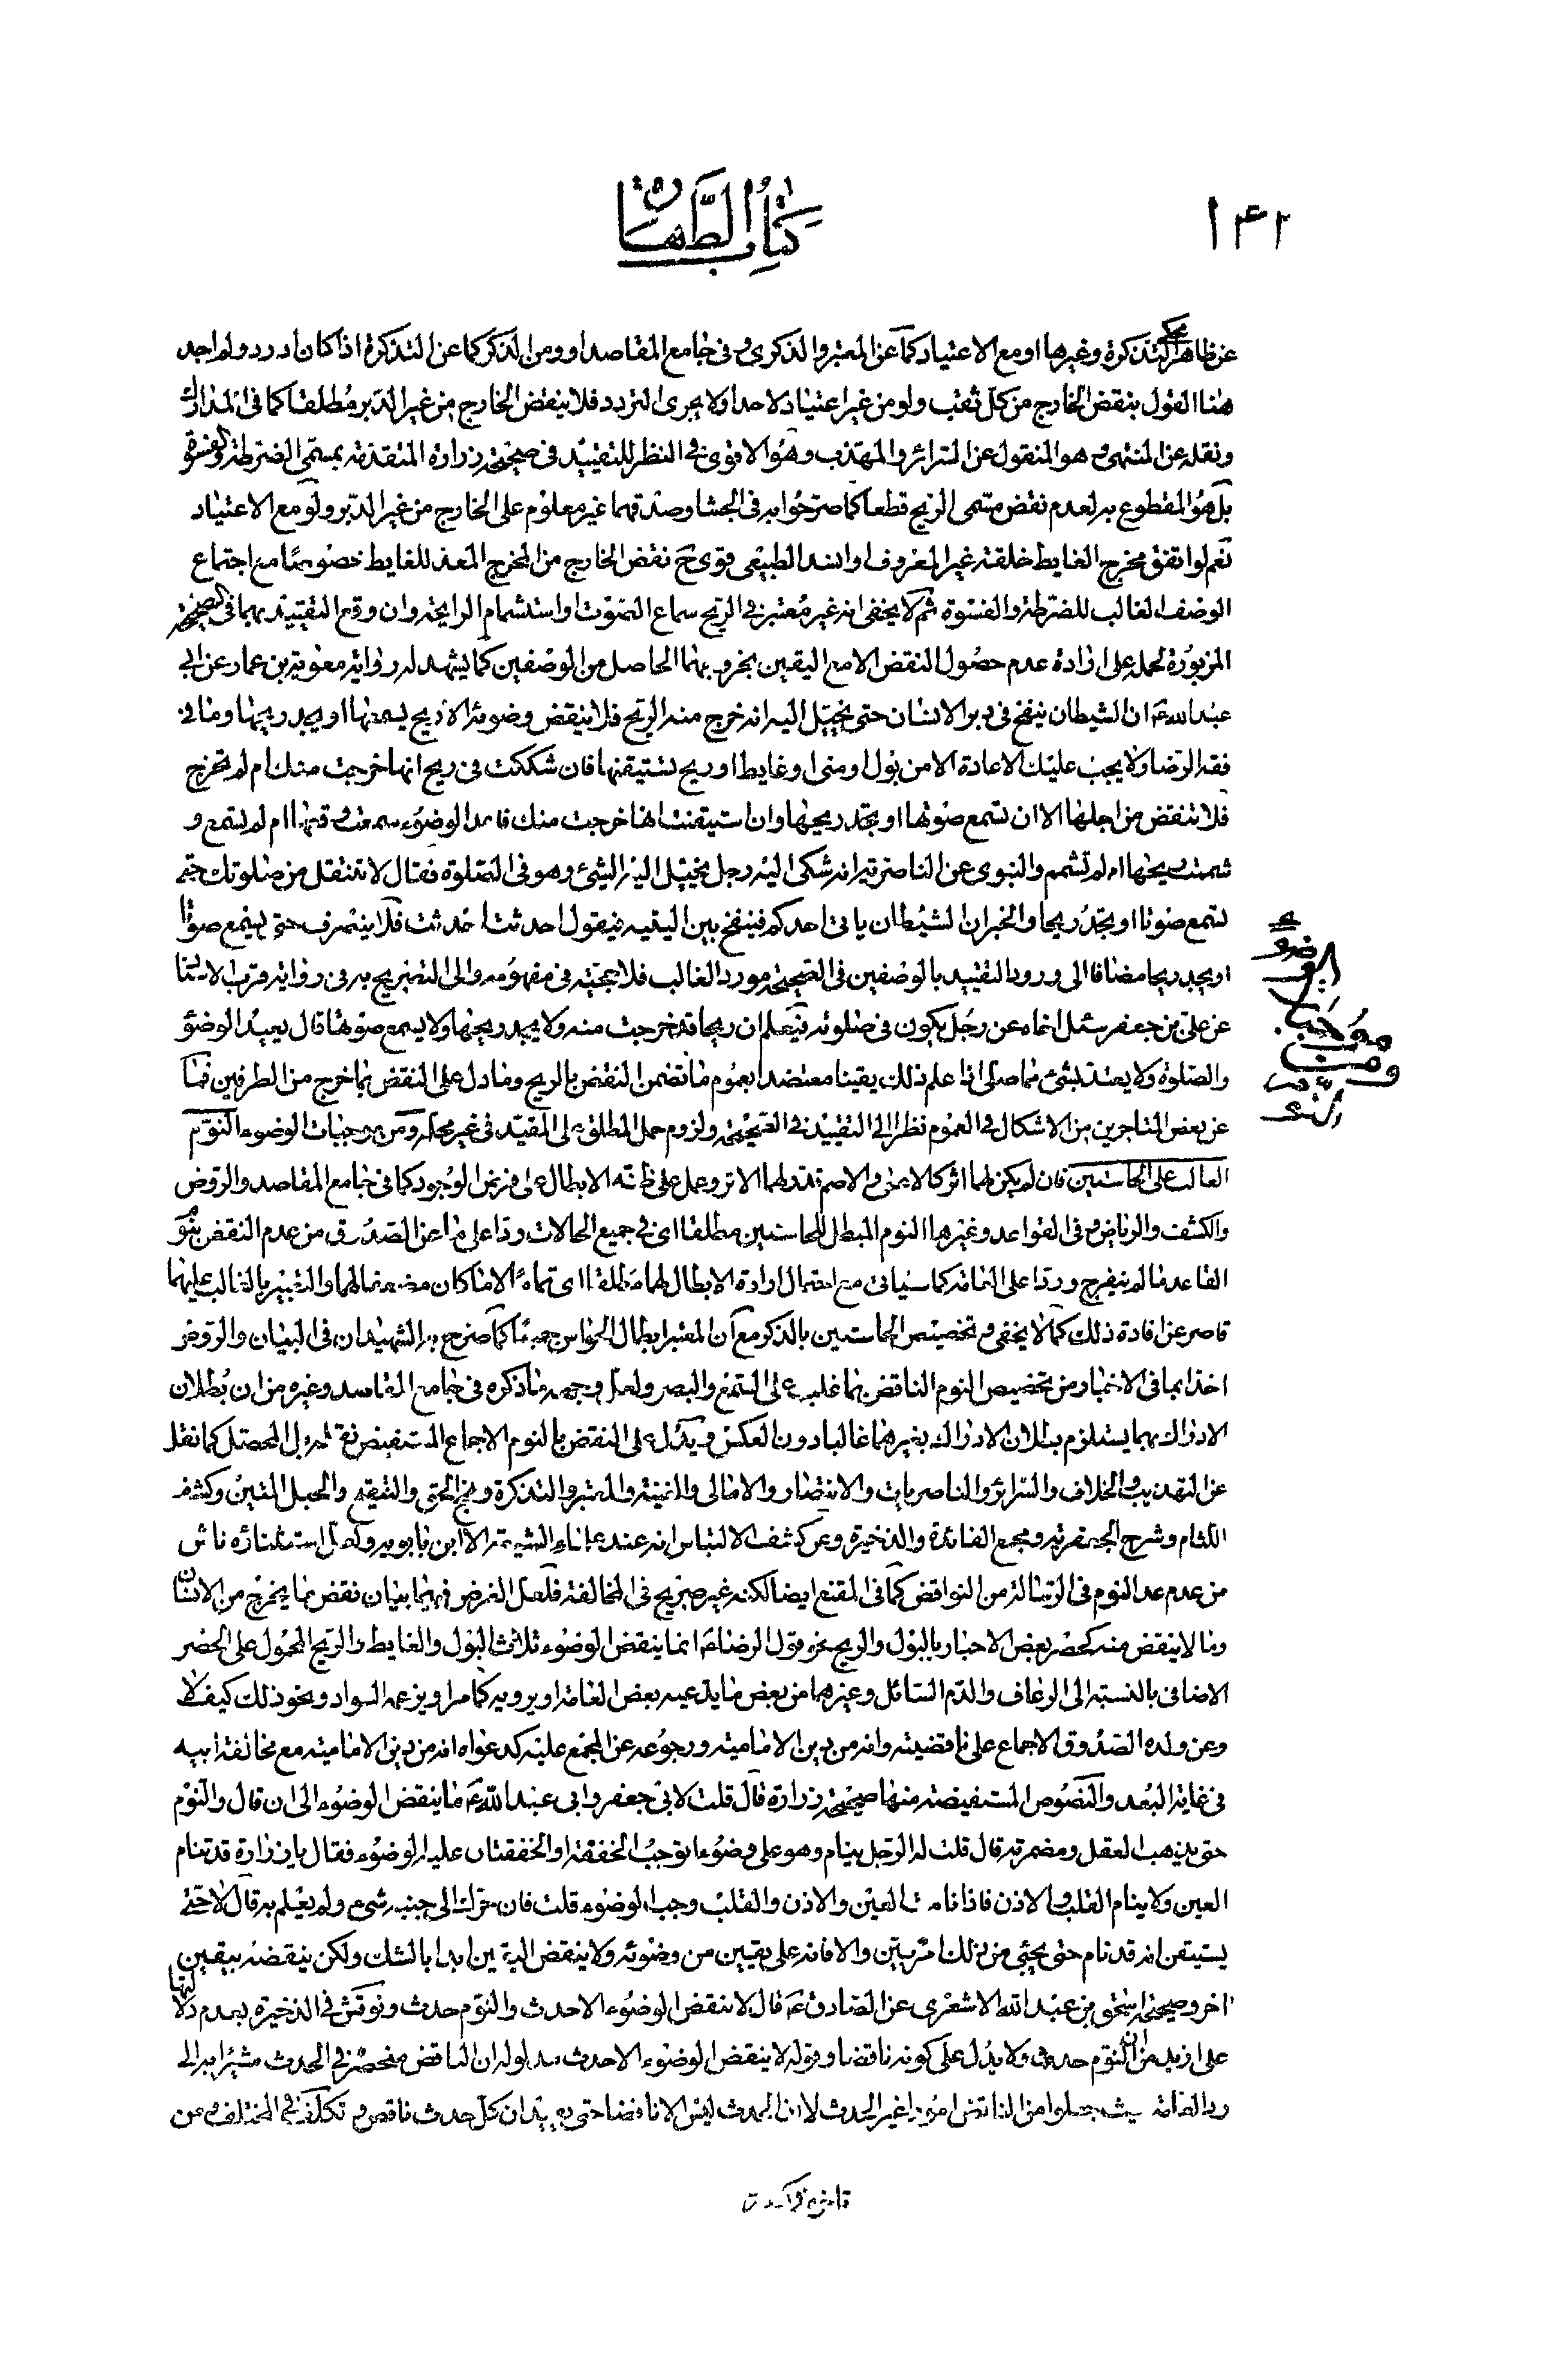 ١٤٢
كتاب الطهارة
عن ظاهر التذكرة وغيرها او مع الاعتياد كما عن المعتبر والذكرى وفى جامع المقاصد او ومن الذكر كما عن التذكرة اذا كان ادر ولم اجد
هنا القول بنقض الخارج من كل ثقب ولو من غير اعتياد لاحد ولا يجرى التردد فلا ينقض الخارج من غير الدبر مطلقا كما فى المدارك
ونقله عن المنتهى وهو المنقول عن السرائر والمهذب وهو الاقوى فى النظر للتقييد فى صحيحة زرارة المتقدمة بمسمى الضرطة والفسوة
بل هو المقطوع به لعدم نقض مسمى الريح قطعا كما صرحوا به فى الجشا وصدقهما غير معلوم على الخارج من غير الدبر ولو مع الاعتياد
نعم لو اتفق مخرج الغايط خلقة غير المعروف او انسد الطبيعى قوى ح نقض الخارج من المخرج المعد للغايط خصوصا مع اجتماع
الوصف الغالب للضرطة والفسوة ثم لا يخفى انه غير معتبر فى الريح سماع الصوت او استشمام الرايحة وان وقع التقييد بهما فى الصحيحة
المزبورة لحمله على ارادة عدم حصول النقض الا مع اليقين بخروجهما الحاصل من الوصفين كما يشهد له رواية معوية بن عمار عن ابى
عبد الله ع ان الشيطان ينفخ فى دبر الانسان حتى يخيل اليه انه خرج منه الريح فلا ينقض وضوئه الا ريح يسمعها او يجد ريحها وما فى
فقه الرضا ولا يجب عليك الاعادة الا من بول او منى او غايط او ريح تستيقنها فان شككت فى ريح انها خرجت منك ام لم تخرج
فلا تنقض من اجلها الا ان تسمع صوتها او تجد ريحها وان استيقنت انها خرجت منك فاعد الوضوء سمعت وقعها ام لم تسمع و
شممت ريحها ام لم تشمم والنبوى عن الناصرية انه شكى اليه رجل يخيل اليه الشئ وهو فى الصلوة فقال لا تنتقل من صلوتك حتى
تسمع صوتا او تجد ريحا والخبر ان الشيطان ياتى احدكم فينفخ بين اليتيه فيقول احدثت احدثت فلا ينصرف حتى يسمع صوتا
او يجد ريحا مضافا الى ورود التقييد بالوصفين فى الصحيحة مورد الغالب فلا حجية فى مفهومه والى التصريح به فى رواية قرب الاسناد
عن على بن جعفر سئل اخاه عن رجل يكون فى صلوته فيعلم ان ريحا قد خرجت منه ولا يجد ريحها ولا يسمع صوتها قال يعيد الوضوء
والصلوة ولا يعتد بشئ مما صلى اذا علم ذلك يقينا معتضدا بعموم ما تضمن النقض بالريح وما دل على النقض بما خرج من الطرفين فما
عن بعض المتاخرين من الاشكال فى العموم نظرا الى التقييد فى الصحيحة ولزوم حمل المطلق على المقيد فى غير محله ومن موجبات الوضوء النوم
الغالب على الحاستين فان لم يكن لهما اثر كالاعمى والاصم قدر لهما الاثر وعمل على ظنه الابطال على فرض الوجود كما فى جامع المقاصد والروض
والكشف والرياض وفى القواعد وغيرها النوم المبطل للحاستين مطلقا اى فى جميع الحالات ردا على ما عن الصدوق من عدم النقض بنوم
القاعد ما لم ينفرج وردا على العامة كما سياتى مع احتمال ارادة الابطال لهما مطلقا اى تماما لا ما كان مضعفا لهما والتعبير بالغالب عليهما
قاصر عن افادة ذلك كما لا يخفى وتخصيص الحاستين بالذكر مع ان المعتبر ابطال الحواس جميعا كما صرح به الشهيدان فى البيان والروض
اخذا بما فى الاخبار من تخصيص النوم الناقض بما غلب على السمع والبصر ولعل وجهه ما ذكره فى جامع المقاصد وغيره من ان بطلان
الادراك بهما يستلزم بطلان الادراك بغيرهما غالبا دون العكس ويدل على النقض بالنوم الاجماع المستفيض نقله بل المحصل كما نقل
عن التهذيب والخلاف والسرائر والناصريات والانتصار والامالى والغنية والمعتبر والتذكرة ونهج الحق والتنقيح والحبل المتين وكشف
اللثام وشرح الجعفرية ومجمع الفائدة والذخيرة وعن كشف الالتباس انه عند علماء الشيعة الا ابن بابويه ولعل استثنائه ناش
من عدم عد النوم فى الرسالة من النواقض كما فى المقنع ايضا لكنه غير صريح فى المخالفة فلعل الغرض فيهما بيان نقض ما يخرج من الانسان
وما لا ينقض منه كحصر بعض الاخبار بالبول والريح نحو قول الرضا ع انما ينقض الوضوء ثلاث البول والغايط والريح المحمول على الحصر
الاضافى بالنسبة الى الرعاف والدم السائل وغيرهما من بعض ما يدعيه بعض العامة او يرويه كما مر او يزعمه السواد ونحو ذلك كيف لا
وعن ولده الصدوق الاجماع على ناقضيته وانه من دين الامامية ورجوعه عن المجمع عليه كدعواه انه من دين الامامية مع مخالفة ابيه
فى غاية البعد والنصوص المستفيضة منها صحيحة زرارة قال قلت لابى جعفر وابى عبد الله ع ما ينقض الوضوء الى ان قال والنوم
حتى يذهب العقل ومضمرته قال قلت له الرجل ينام وهو على وضوء اتوجب الخفقة او الخفقتان عليه الوضوء فقال يا زرارة قد تنام
العين ولا ينام القلب والاذن فاذا نامت العين والاذن والقلب وجب الوضوء قلت فان حرك الى جنبه شئ ولم يعلم به قال لا حتى
يستيقن انه قد نام حتى يجئ من ذلك امر بين والا فانه على يقين من وضوئه ولا ينقض اليقين ابدا بالشك ولكن ينقضه بيقين
اخر وصحيحة اسحق بن عبد الله الاشعرى عن الصادق ع قال لا ينقض الوضوء الا حدث والنوم حدث ونوقش فى الذخيرة بعدم دلالتها
على ازيد من ان النوم حدث ولا يدل على كونه ناقضا وقوله لا ينقض الوضوء الا حدث مدلوله ان الناقض منحصر فى الحدث مشيرا به الى
رد العامة حيث جعلوا من الناقض امورا غير الحدث لا ان الحدث ليس الا ناقضا حتى يفيد ان كل حدث ناقض وتكلف فى المختلف من
ومن موجبات الوضوء
النوم